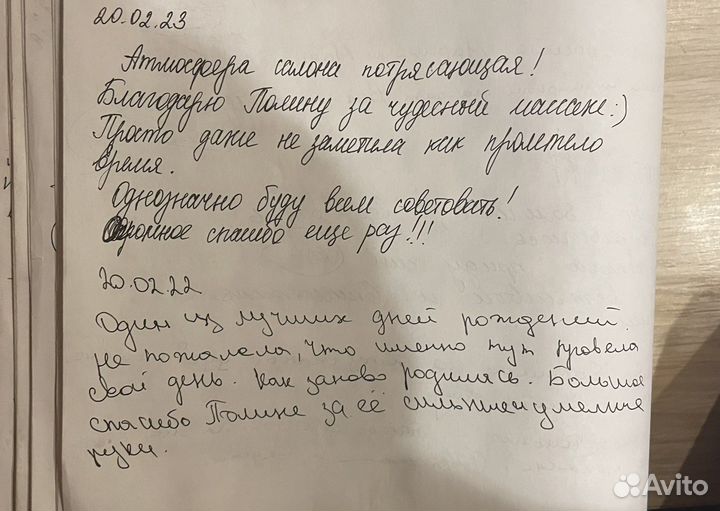 20.02.23
Атмосфера салона потрясающая!
Благодарю Полину за чудесный массаж:)
Просто даже не заметила как пролетело
время.
Однозначно буду всем советовать!
Огромное спасибо еще раз!!!
20.02.22
Один из лучших дней рождений.
Не пожалела, что именно тут провела
свой день. Как заново родилась. Большое
спасибо Полине за её сильные умелые
руки.
Avito